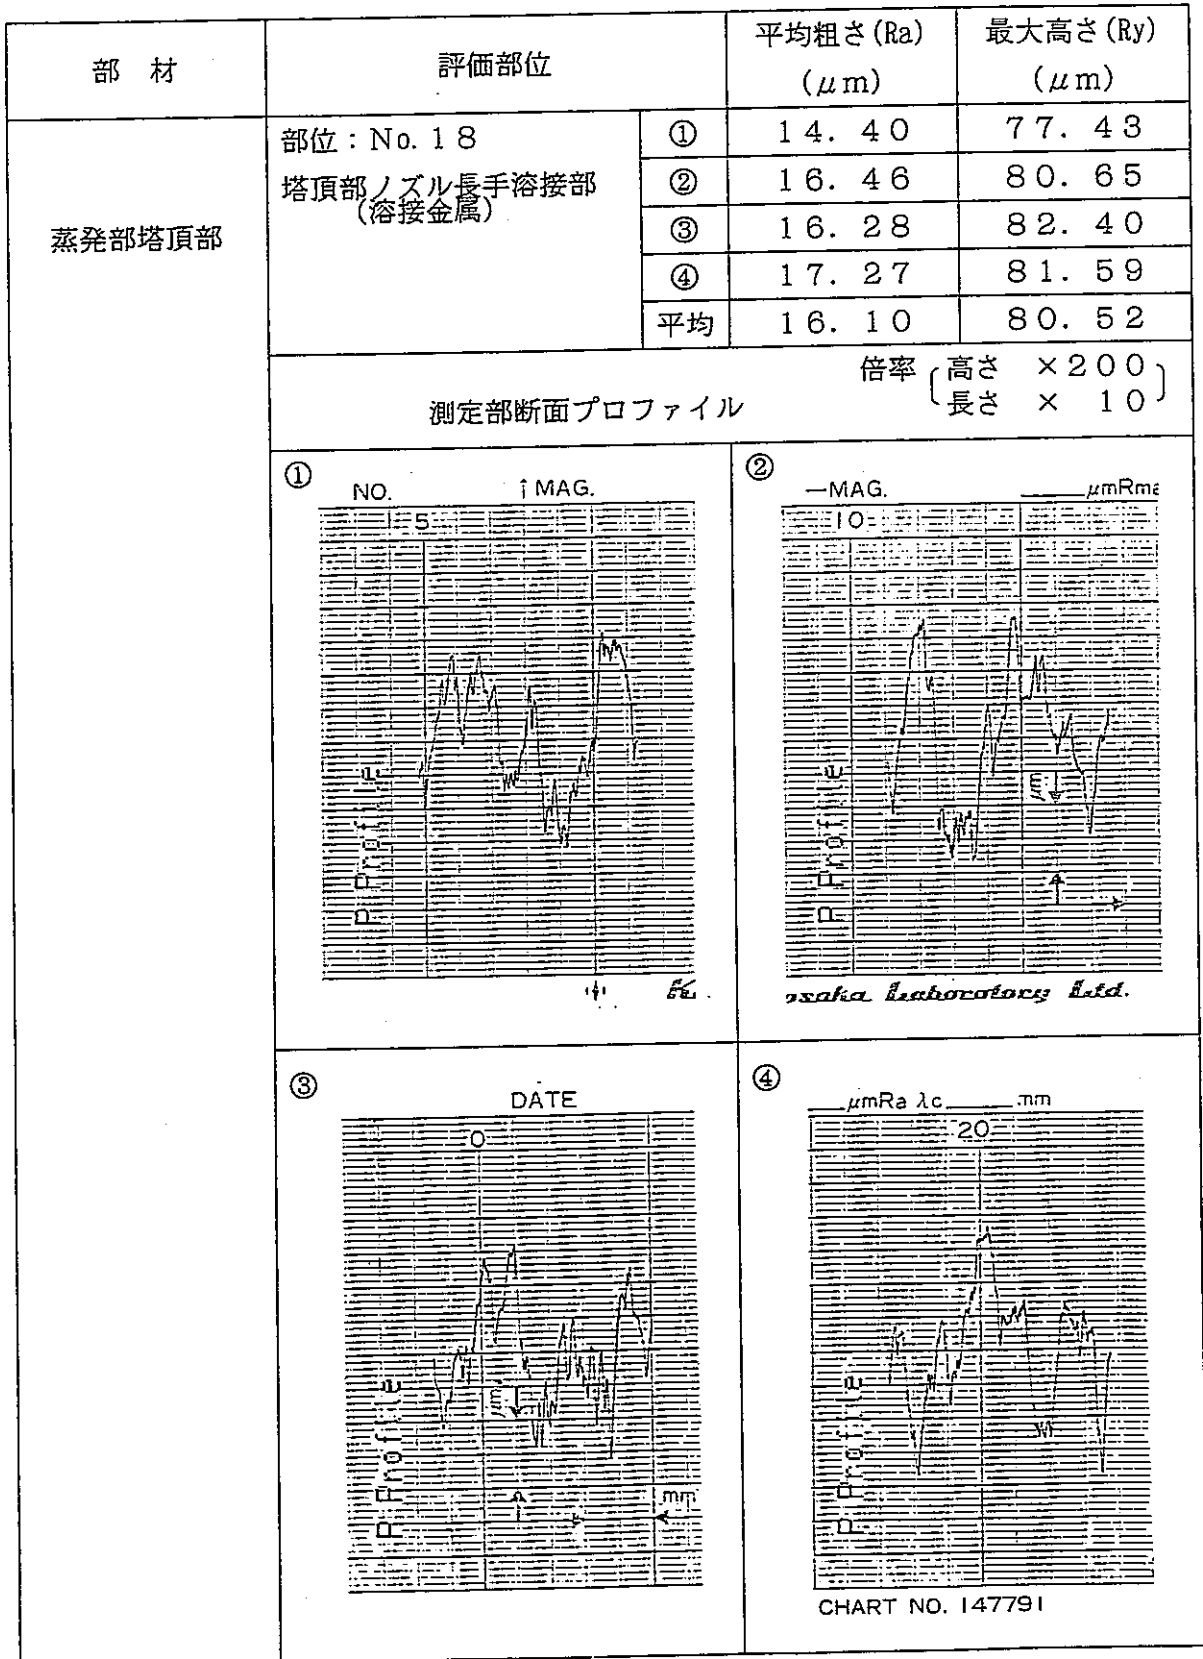 部 材
評価部位
平均粗さ(Ra)
(μm)
最大高さ(Ry)
(μm)
蒸発部塔頂部
部位：No. 18
塔頂部ノズル長手溶接部
(溶接金属)
① 14. 40 77. 43
② 16. 46 80. 65
③ 16. 28 82. 40
④ 17. 27 81. 59
平均 16. 10 80. 52
測定部断面プロファイル
倍率 高さ ×200
長さ × 10
①
NO. ↑MAG.
5
P Profile
②
—MAG. ____μmRma
10
P Profile
μm
osaka Laboratory Ltd.
③
DATE
0
P Profile
μm
mm
④
__μmRa λc____mm
20
P Profile
CHART NO. 147791